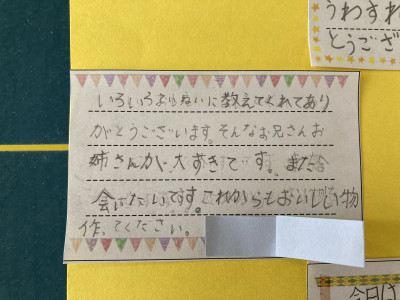 うわすれ
とうござ
いろいろおしえないに教えてくれてあり
がとうございます。そんなお兄さんお
姉さんが大すきです。また
会いたいです。これからもおいしい物
作ってください。
今日は